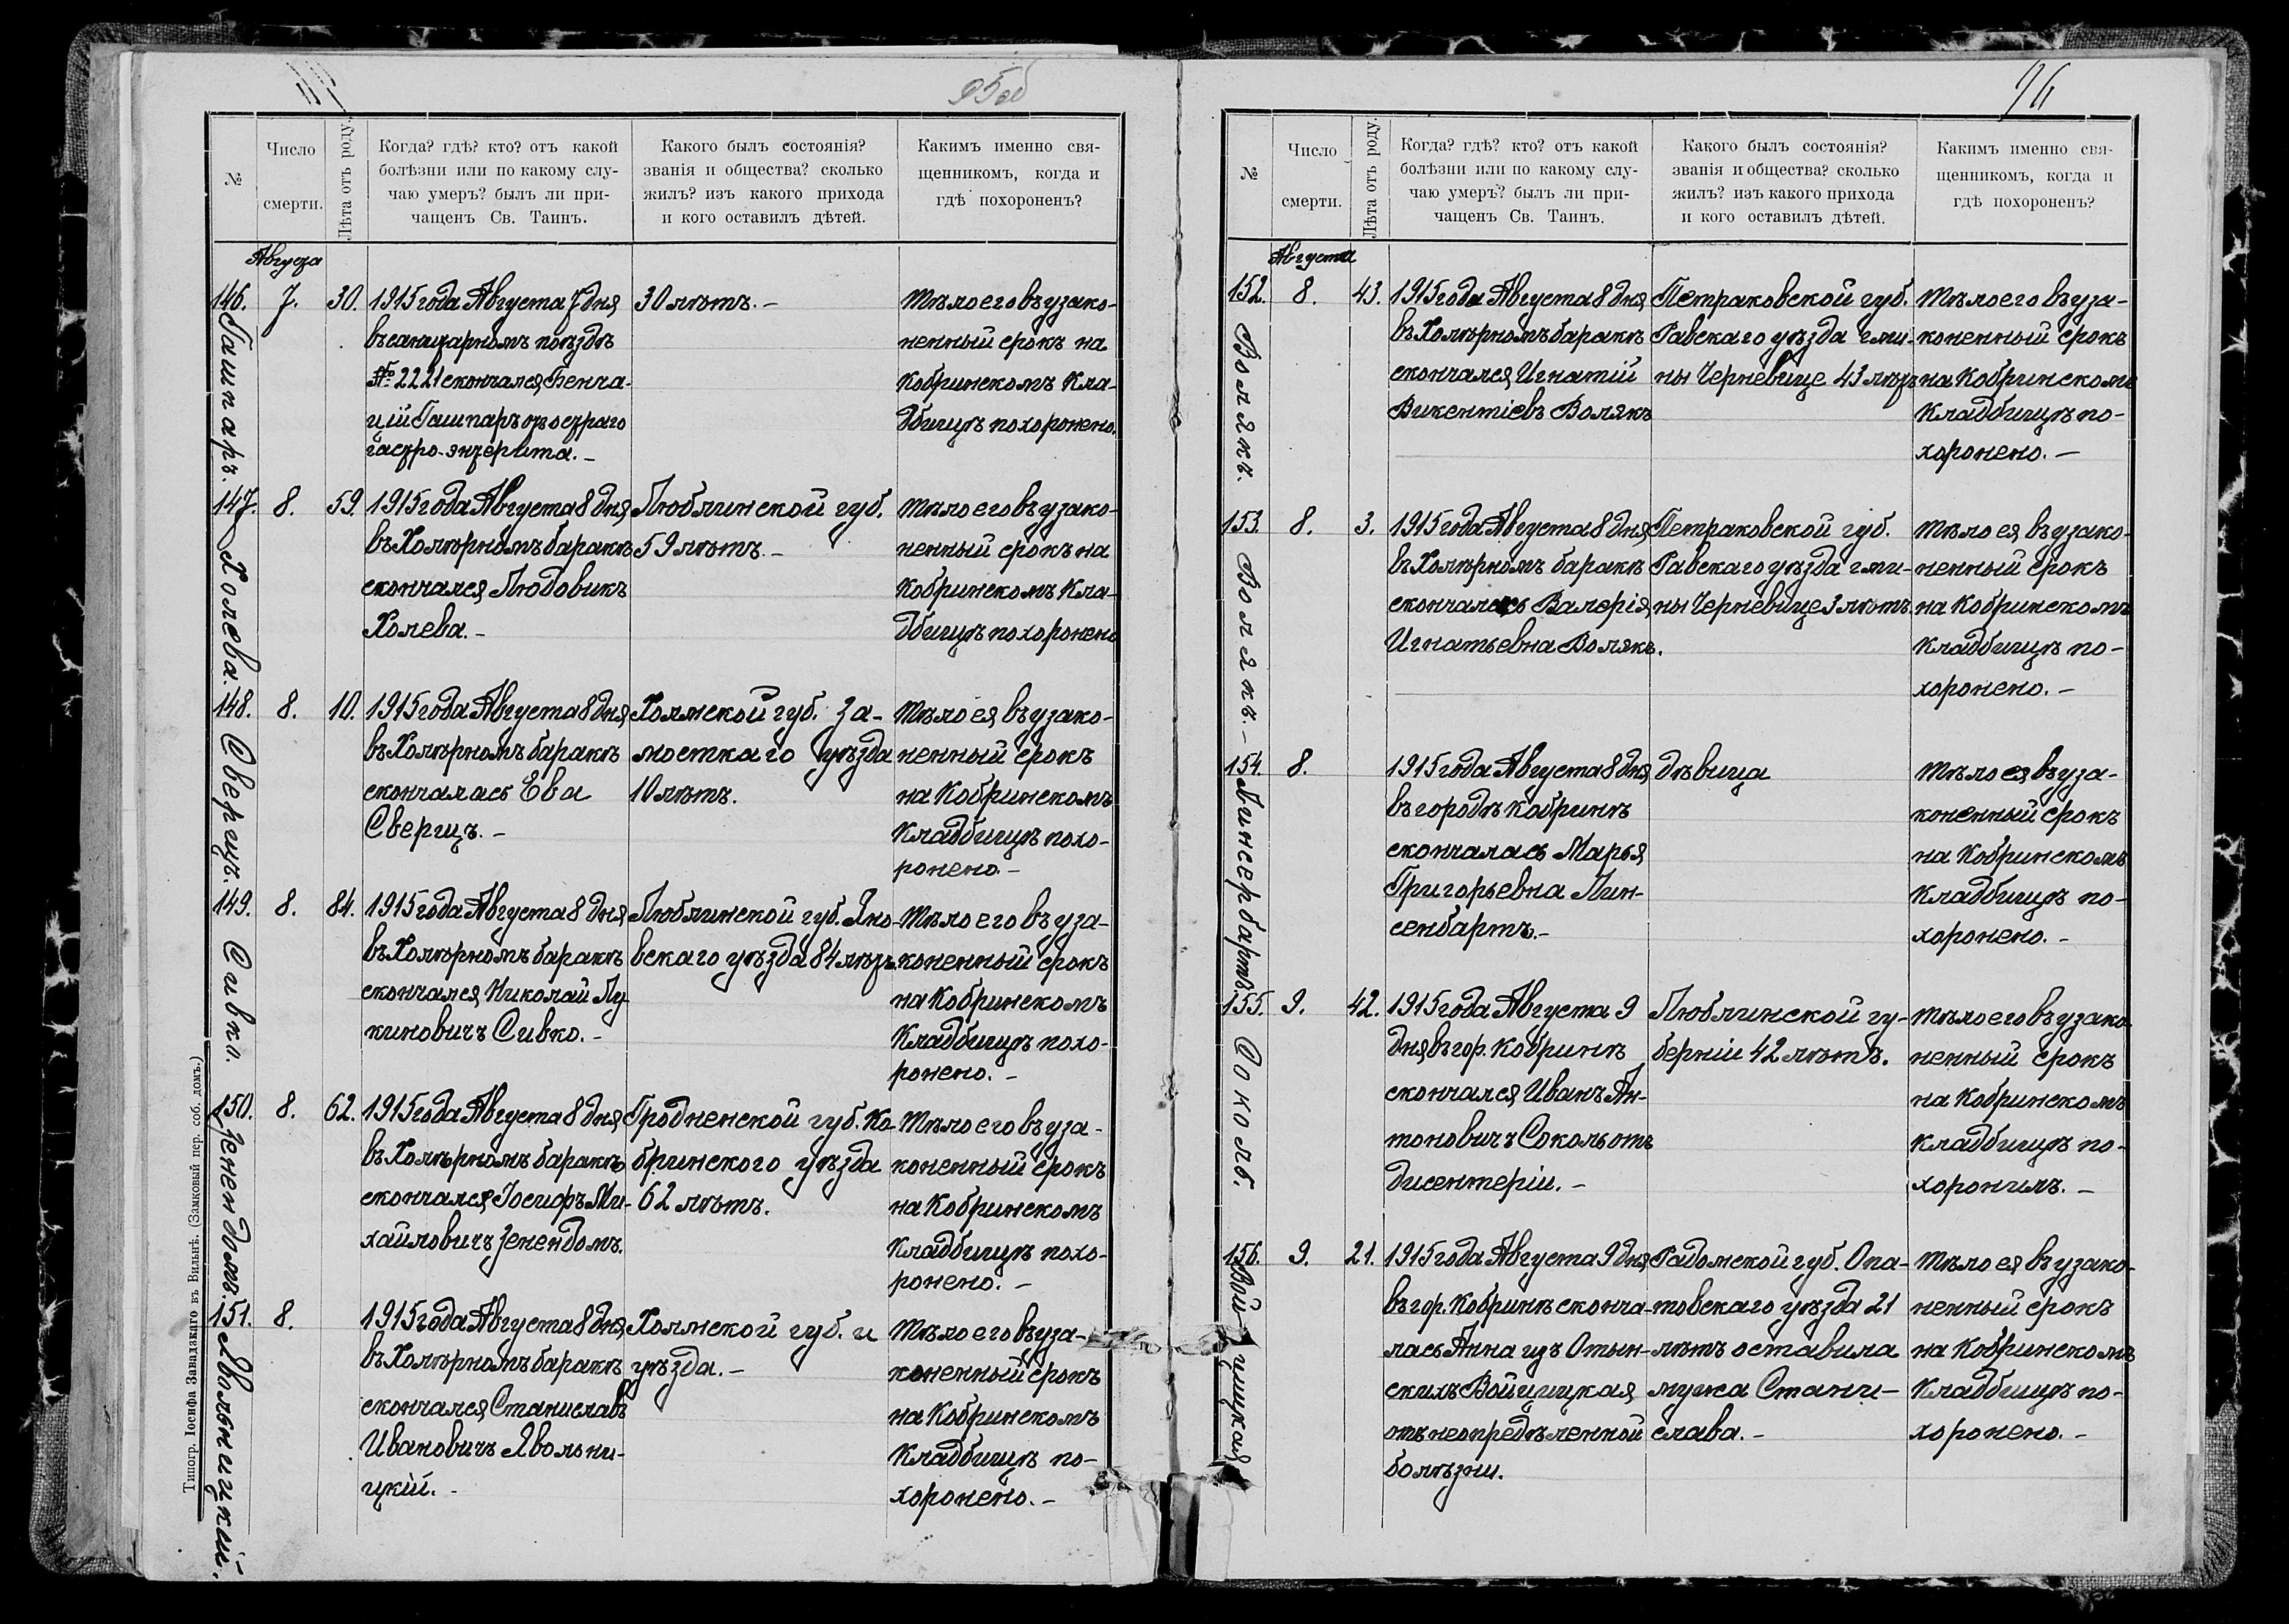 95об
№
Число
смерти.
Лѣта отъ роду.
Когда? гдѣ? кто? отъ какой
болѣзни или по какому слу-
чаю умеръ? былъ ли при-
чащенъ Св. Таинъ.
Какого былъ состоянія?
званія и общества? сколько
жилъ? изъ какого прихода
и кого оставилъ дѣтей.
Какимъ именно свя-
щенникомъ, когда и
гдѣ похороненъ?
Августа
146.
Гашпаръ.
7.
30.
1915 года Августа 7 дня
въ санитарномъ поѣздѣ
№ 2221 скончался
Гашпаръ отъ остраго
гастро-энтерита. –
30 лѣтъ. –
Тѣло его въ узако-
ненный срокъ на
Кобринскомъ Кла-
дбищѣ похоронено.
147.
Холева.
8.
59.
1915 года Августа 8 дня
въ Холѣрномъ баракѣ
скончался Людовикъ
Холева. –
Люблинской губ.
59 лѣтъ. –
Тѣло его въ узако-
ненный срокъ на
Кобринскомъ Кла-
дбищѣ похоронено
148.
Сверщъ.
8.
10.
1915 года Августа 8 дня
въ Холѣрномъ баракѣ
скончалась Ева
Сверщъ. –
Холмской губ. За-
мосткаго уѣзда
10 лѣтъ.
Тѣло ея въ узако-
ненный срокъ
на Кобринскомъ
Кладбищѣ похо-
ронено. –
149.
Сивко.
8.
84.
1915 года Августа 8 дня
въ Холѣрномъ баракѣ
скончался Николай Лу
киновичъ Сивко. –
Люблинской губ. Яно-
вскаго уѣзда 84 лѣтъ.
Тѣло его въ уза-
коненный срокъ
на Кобринскомъ
Кладбищѣ похо-
ронено. –
150.
Зенендомъ.
8.
62.
1915 года Августа 8 дня
въ Холѣрномъ баракѣ
скончался Іосифъ Ми-
хайловичъ Зенендомъ.
Гродненской губ. Ко-
бринского уѣзда
62 лѣтъ.
Тѣло его въ уза-
коненный срокъ
на Кобринскомъ
Кладбищѣ похо-
ронено. –
151.
Явольницкій.
8.
1915 года Августа 8 дня
въ Холѣрномъ баракѣ
скончался Станиславъ
Ивановичъ Явольни-
цкій. –
Холмской губ. и
уѣзда. –
Тѣло его въ уза-
коненный срокъ
на Кобринскомъ
Кладбищѣ по-
хоронено. –
Типогр. Іосифа Завадзкаго въ Вильнѣ. (Замковый пер. соб. домъ.)
96
№
Число
смерти.
Лѣта отъ роду.
Когда? гдѣ? кто? отъ какой
болѣзни или по какому слу-
чаю умеръ? былъ ли при-
чащенъ Св. Таинъ.
Какого былъ состоянія?
званія и общества? сколько
жилъ? изъ какого прихода
и кого оставилъ дѣтей.
Какимъ именно свя-
щенникомъ, когда и
гдѣ похороненъ?
Августа
152.
Волякъ.
8.
43.
1915 года Августа 8 дня
въ Холѣрномъ баракѣ
скончался Игнатій
Викентіевъ Волякъ
Петраковской губ.
Равскаго уѣзда гми-
ны Черневице 43 лѣтъ
Тѣло его въ уза-
коненный срокъ
на Кобринскомъ
Кладбищѣ по-
хоронено. –
153.
Волякъ. –
8.
3.
1915 года Августа 8 дня
въ Холѣрномъ баракѣ
скончалась Валерія
Игнатьевна Волякъ.
Петраковской губ.
Равскаго уѣзда гми-
ны Черневице 3 лѣтъ.
Тѣло ея въ узако-
ненный срокъ
на Кобринскомъ
Кладбищѣ по-
хоронено. –
154.
Линсенбартъ.
8.
1915 года Августа 8 дня
въ городѣ Кобринѣ
скончалась Марья
Григорьевна Лин-
сенбартъ. –
дѣвица
Тѣло ея въ уза-
коненный срокъ
на Кобринскомъ
Кладбищѣ по-
хоронено. –
155.
Соколъ.
9.
42.
1915 года Августа 9
дня въ гор. Кобринѣ
скончался Иванъ Ан-
тоновичъ Соколъ отъ
дисентеріи. –
Люблинской гу-
берніи 42 лѣтъ.
Тѣло его въ узако-
ненный срокъ
на Кобринскомъ
Кладбищѣ по-
хоронилъ. –
156.
Вой-
цицкая
9.
21.
1915 года Августа 9 дня
въ гор. Кобринѣ сконча-
лась Анна изъ Отын-
скихъ Войцицкая
отъ неопредѣленной
болѣзни.
Радомской губ. Опа-
товскаго уѣзда 21
лѣтъ оставила
мужа Стани-
слава. –
Тѣло ея въ узако-
ненный срокъ
на Кобринскомъ
Кладбищѣ по-
хоронено. –